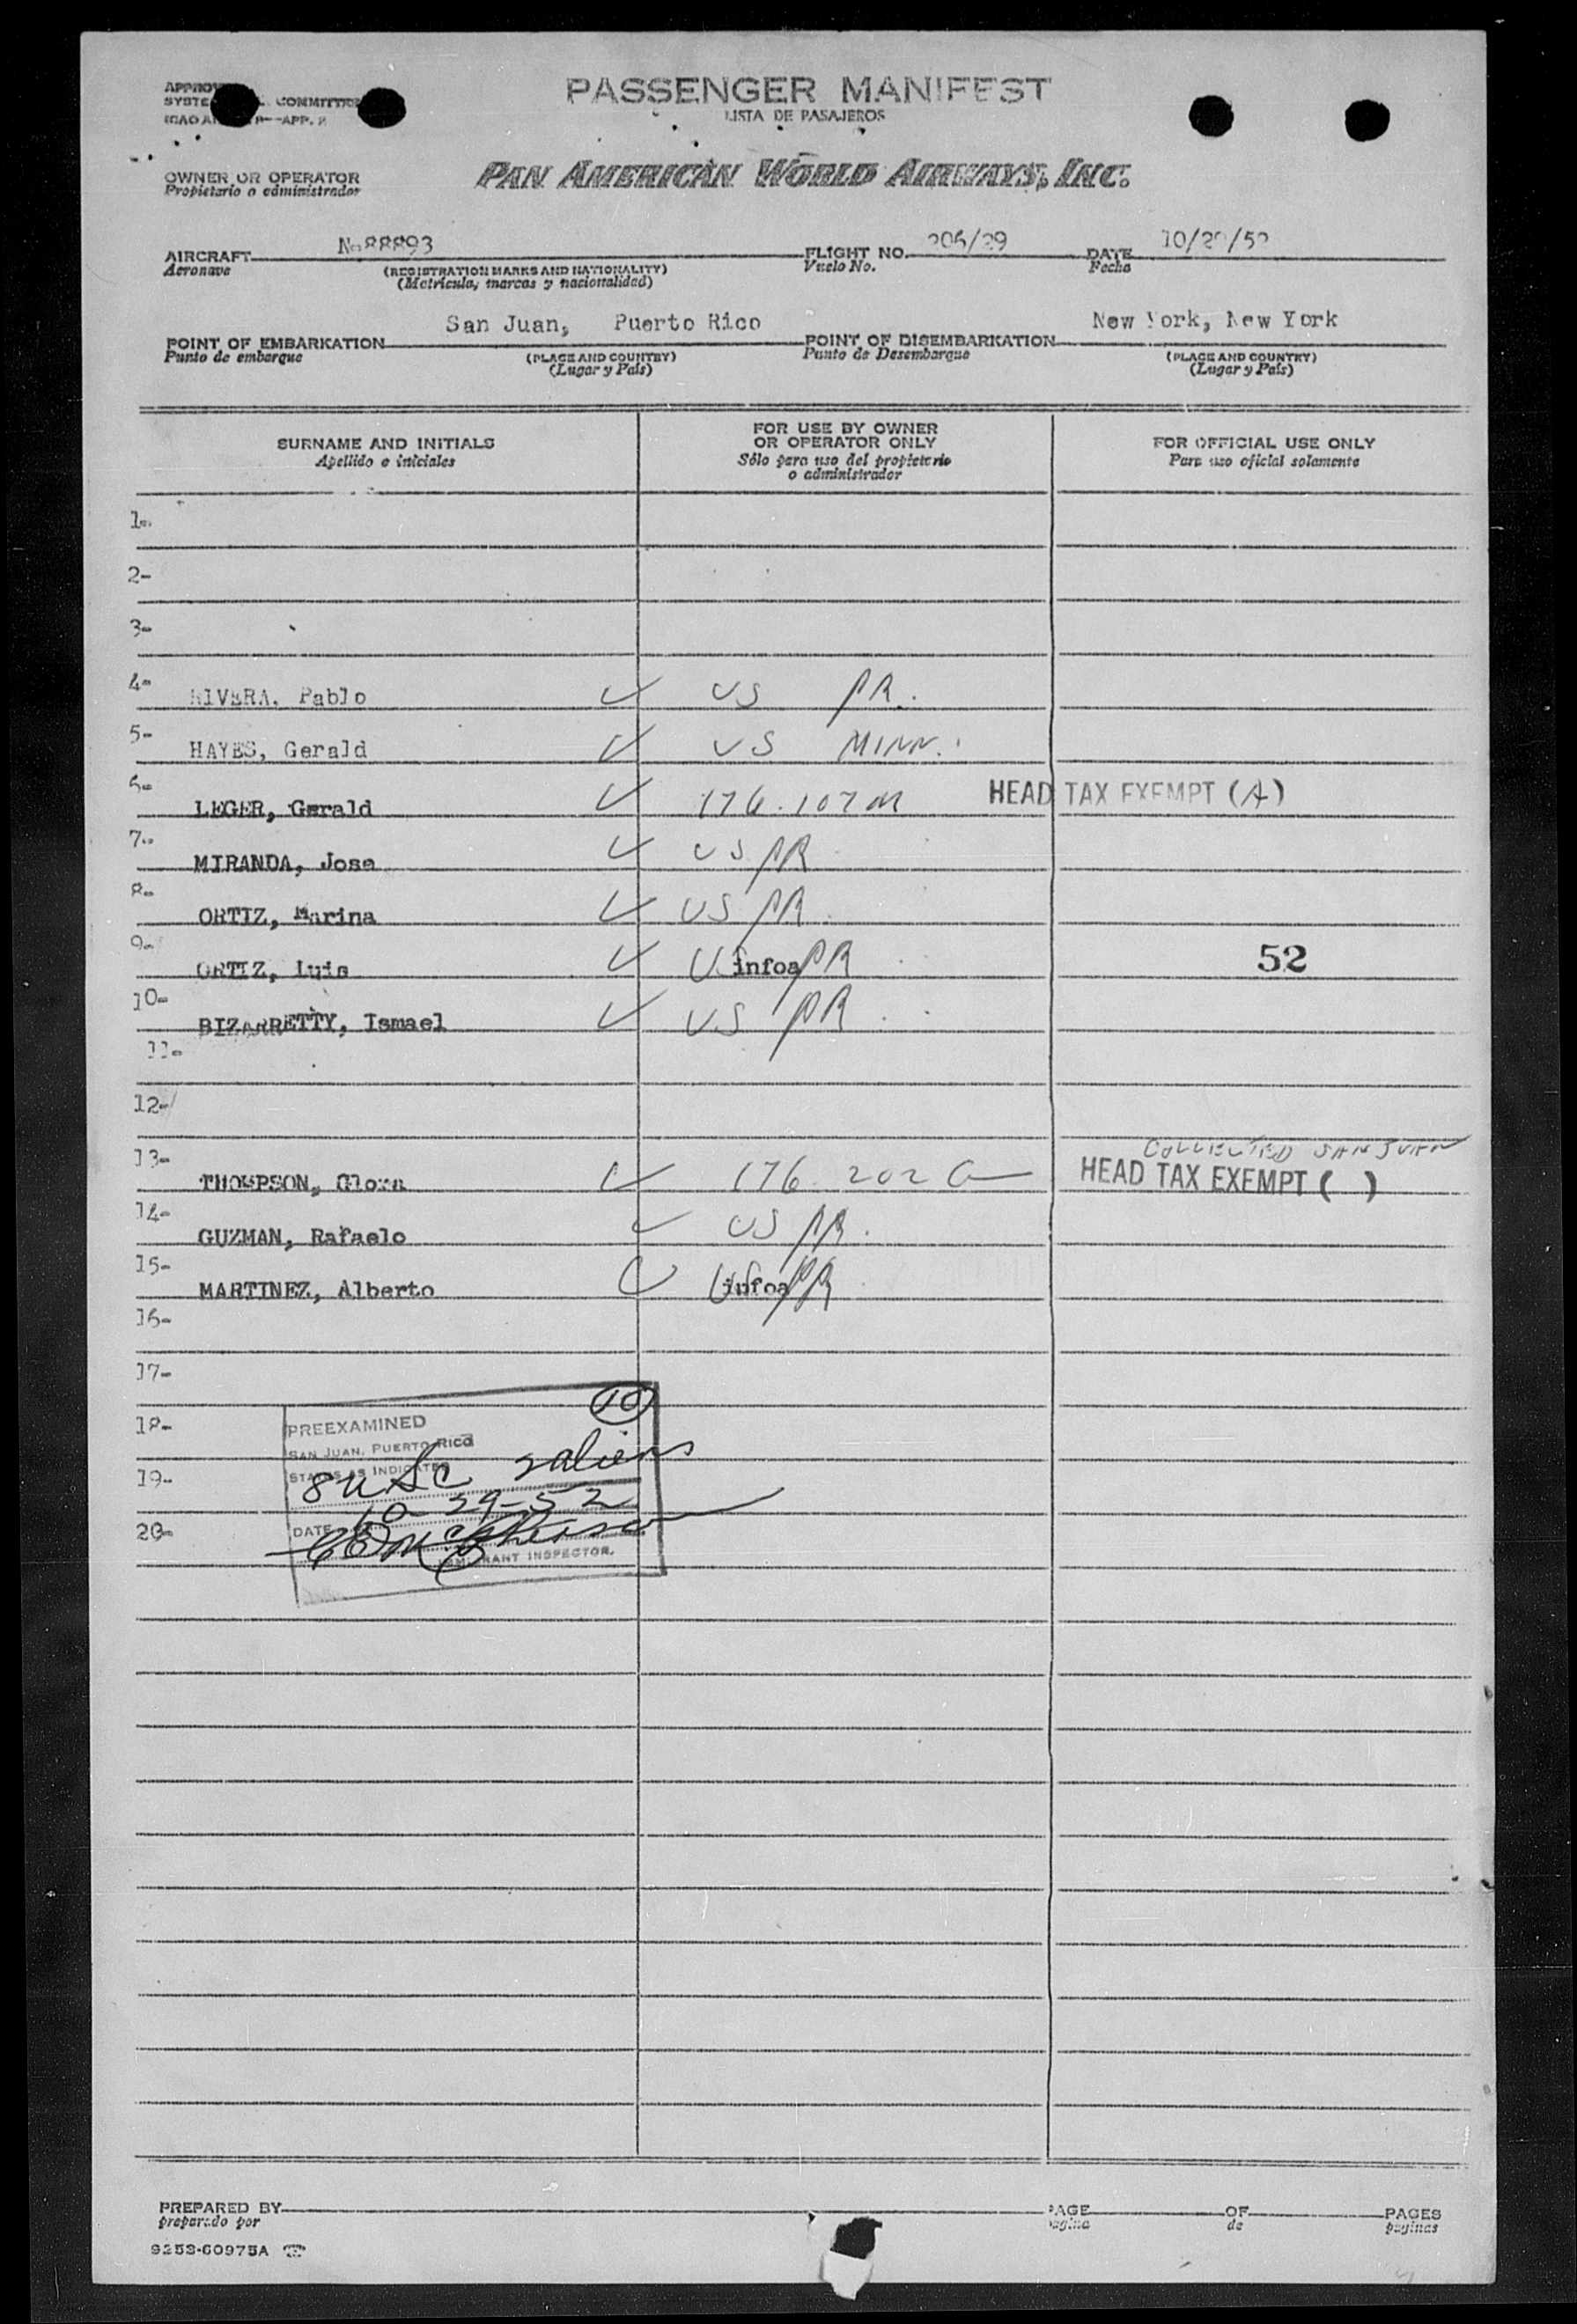 PASSENGER MANIFEST
LISTA DE PASAJEROS
COMMITTEE
APP. 2
OWNER OR OPERATOR
Propietario o administrador
PAN AMERICAN WORLD AIRWAYS, INC.
AIRCRAFT No 88893 FLIGHT NO. 206/29 DATE 10/29/52
Aeronave (REGISTRATION MARKS AND NATIONALITY) Vuelo No. Fecha
(Matrícula, marcas y nacionalidad)
POINT OF EMBARKATION San Juan, Puerto Rico POINT OF DISEMBARKATION New York, New York
Punto de embarque (PLACE AND COUNTRY) Punto de Desembarque (PLACE AND COUNTRY)
(Lugar y País) (Lugar y País)
SURNAME AND INITIALS FOR USE BY OWNER OR OPERATOR ONLY FOR OFFICIAL USE ONLY
Apellido e iniciales Sólo para uso del propietario o administrador Para uso oficial solamente
1-
2-
3-
4- RIVERA, Pablo ✓ US PR.
5- HAYES, Gerald ✓ US MINN.
6- LEGER, Gerald ✓ 176.107M HEAD TAX EXEMPT (A)
7- MIRANDA, Jose ✓ US PR
8- ORTIZ, Marina ✓ US PR
9- ORTIZ, Luis ✓ US infoa PR 52
10- BIZARRETTY, Ismael ✓ US PR
11-
12-
COLLECTED SAN JUAN
13- THOMPSON, ✓ 176 202 G HEAD TAX EXEMPT ( )
14- GUZMAN, Rafaelo ✓ US PR.
15- MARTINEZ, Alberto ✓ US infoa PR
16-
17-
10
18- PREEXAMINED
SAN JUAN, PUERTO RICO
STATUS AS INDICATED
19- 8 USC 2 aliens
10-29-52
20- DATE
IMMIGRANT INSPECTOR.
PREPARED BY PAGE OF PAGES
preparado por página de páginas
9253-60975A